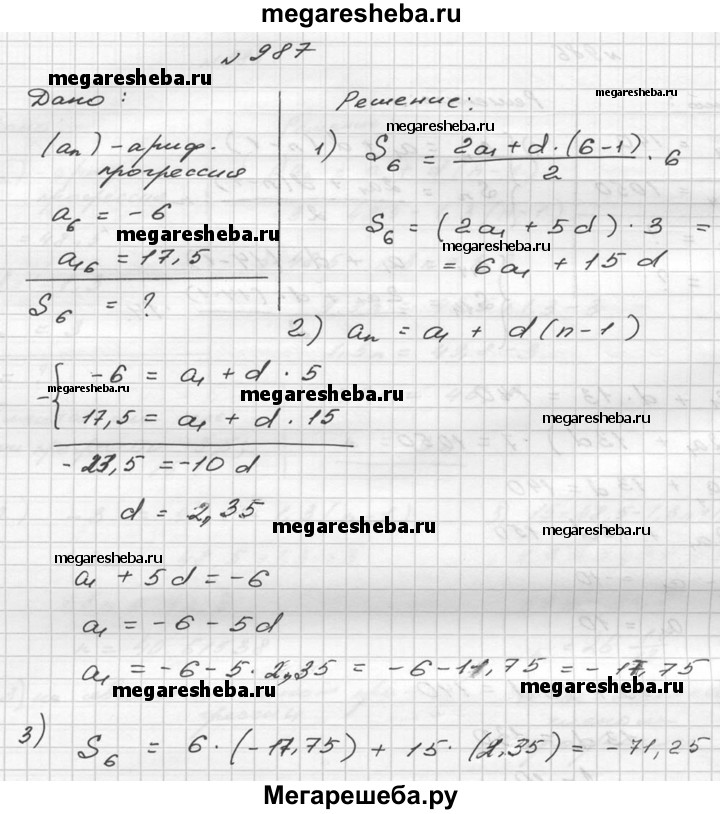 megaresheba.ru
№ 987
megaresheba.ru
Дано :
(aₙ) – ариф.
прогрессия
a₆ = – 6
megaresheba.ru
a₁₆ = 17,5
S₆ = ?
megaresheba.ru
Решение:
megaresheba.ru
1) S₆ = (2a₁ + d · (6–1))/2 · 6
S₆ = (2a₁ + 5d) · 3 =
megaresheba.ru
= 6a₁ + 15d
2) aₙ = a₁ + d(n–1)
– { –6 = a₁ + d · 5
megaresheba.ru megaresheba.ru
17,5 = a₁ + d · 15
megaresheba.ru
– 23,5 = –10 d
d = 2,35
megaresheba.ru megaresheba.ru
megaresheba.ru
a₁ + 5d = – 6
a₁ = – 6 – 5d
a₁ = – 6 – 5 · 2,35 = – 6 – 11,75 = – 17,75
megaresheba.ru megaresheba.ru
3) S₆ = 6 · (–17,75) + 15 · (2,35) = – 71,25
Мегарешеба.ру